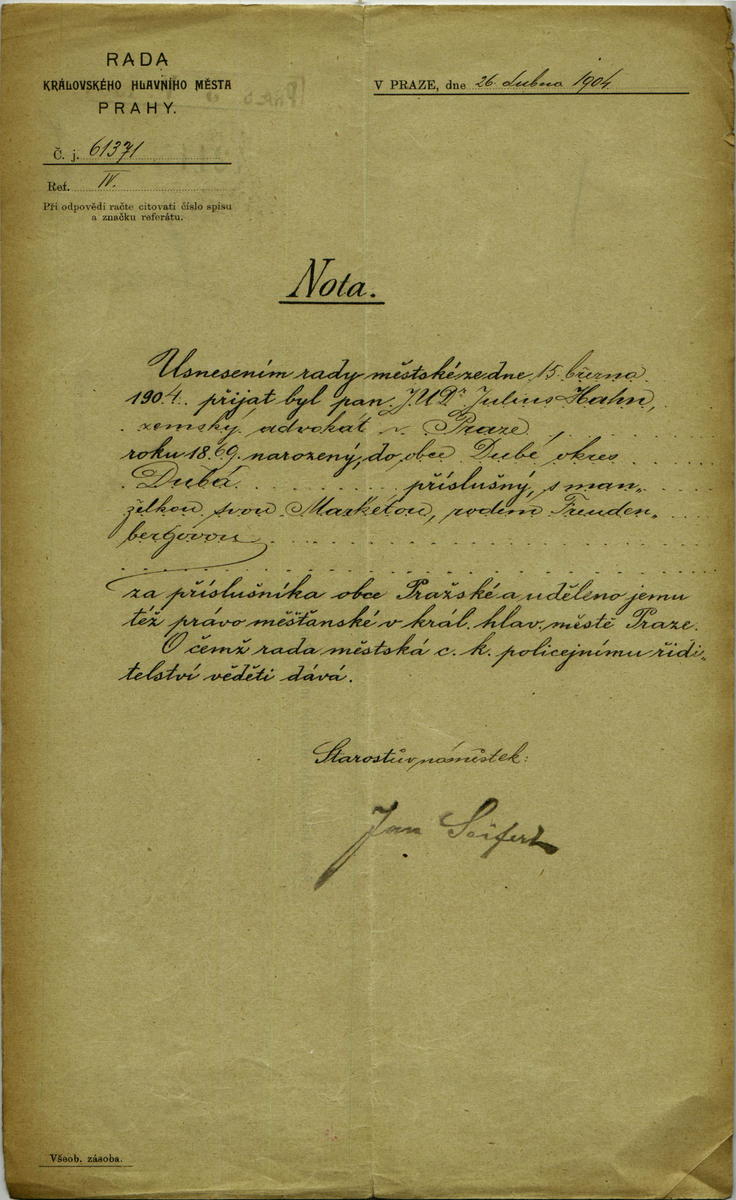 RADA
KRÁLOVSKÉHO HLAVNÍHO MĚSTA
PRAHY.
V PRAZE, dne 26. dubna 1904.
Č. j. 61371
Ref. IV.
Při odpovědi račte citovati číslo spisu
a značku referátu.
Nota.
Usnesením rady městské ze dne 15. března
1904. přijat byl pan JUDr Julius Hahn,
zemský advokát v Praze
roku 1869. narozený, do obce Dubé okres
Dubá příslušný, s man„
želkou svou Markétou, rodem Freuden„
bergovou
za příslušníka obce Pražské a uděleno jemu
též právo měšťanské v král. hlav. městě Praze.
O čemž rada městská c. k. policejnímu ředi„
telství věděti dává.
Starostův náměstek:
Jan Seifert
Všeob. zásoba.